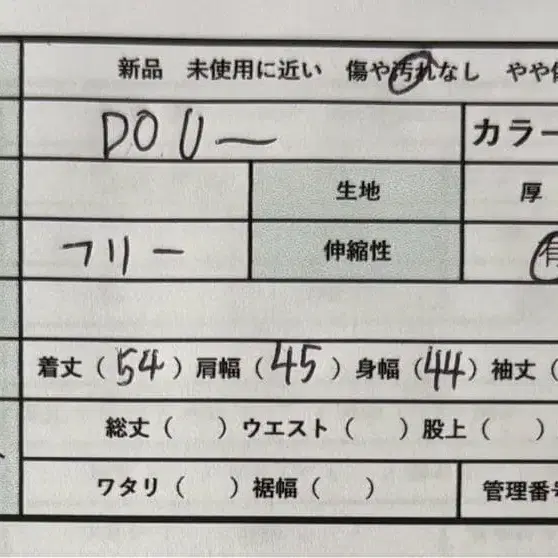 新品 未使用に近い 傷や汚れなし やや傷
DOUー カラー
生地 厚
フリー 伸縮性 有
着丈（54）肩幅（45）身幅（44）袖丈（
総丈（ ）ウエスト（ ）股上（ ）
ワタリ（ ）裾幅（ ） 管理番号